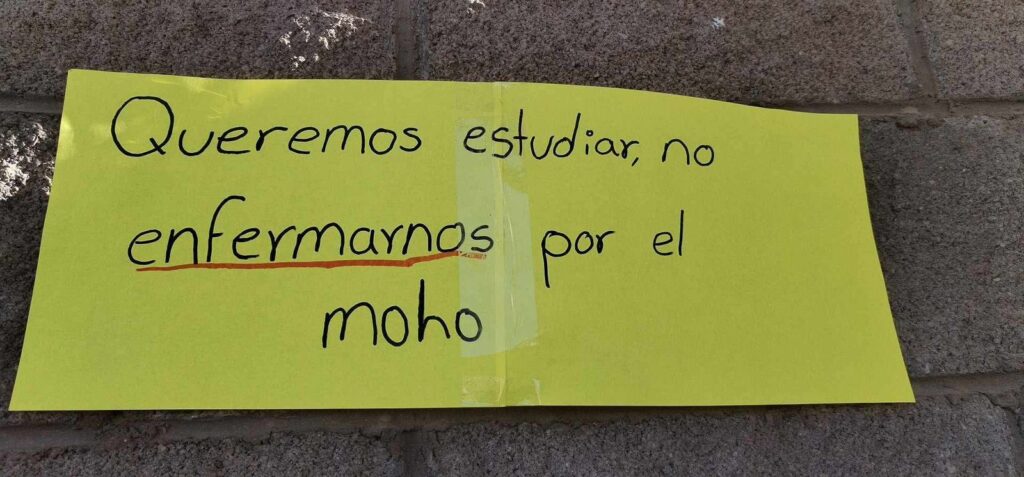 Queremos estudiar, no
enfermarnos por el
moho